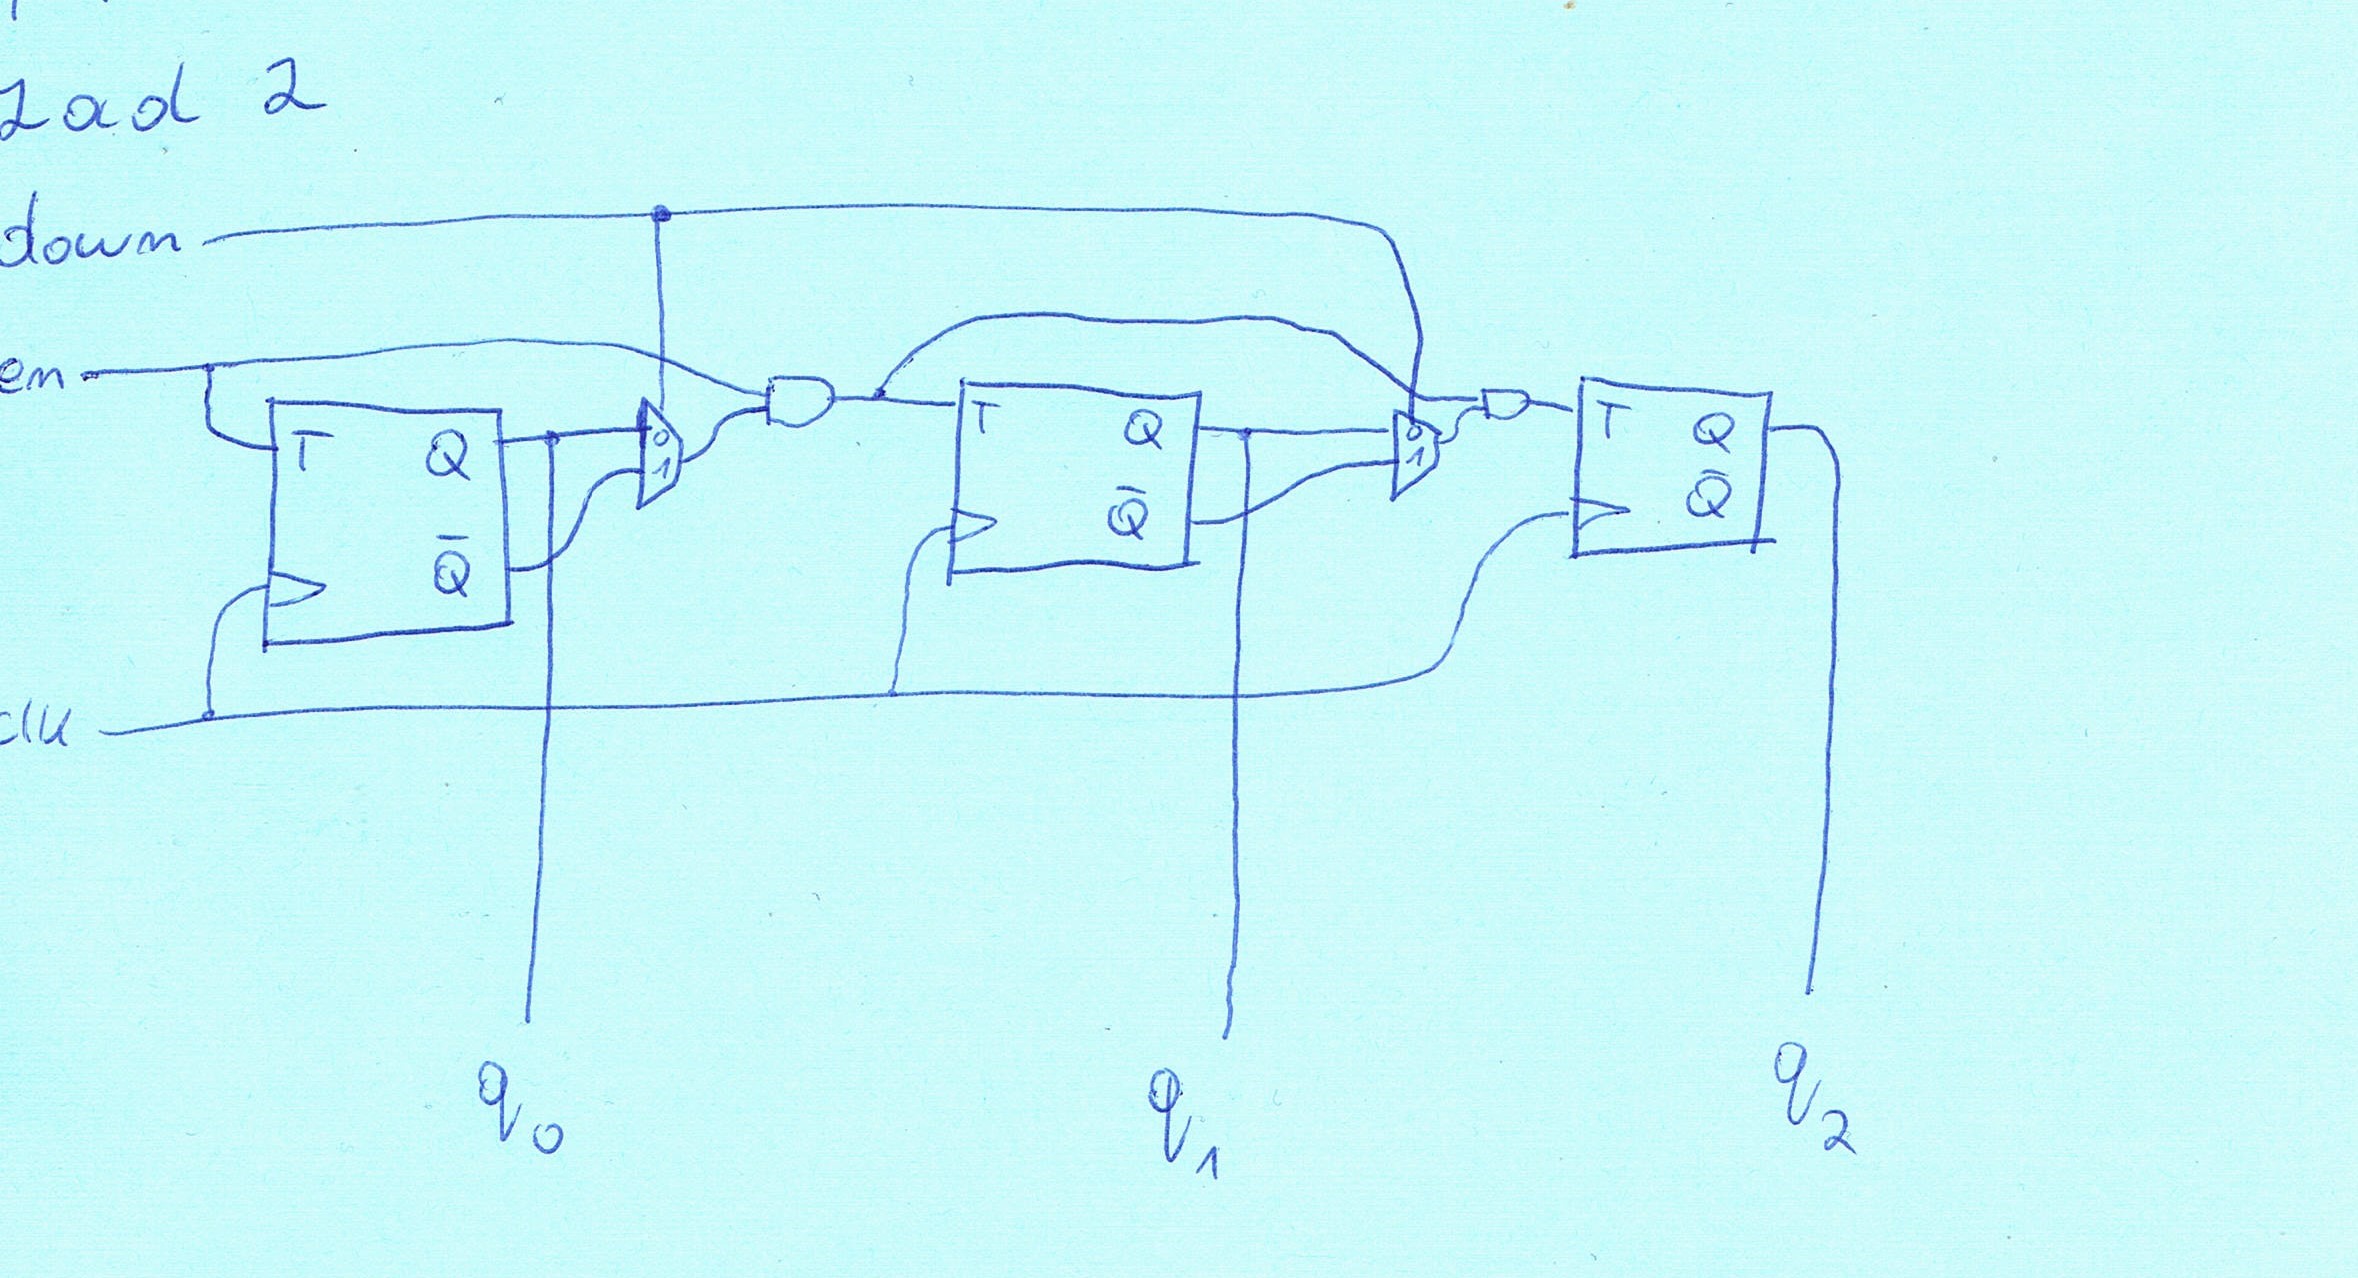 Zad 2
down
en
T Q
Q̄
0
1
T Q
Q̄
0
1
T Q
Q̄
clk
q0
q1
q2